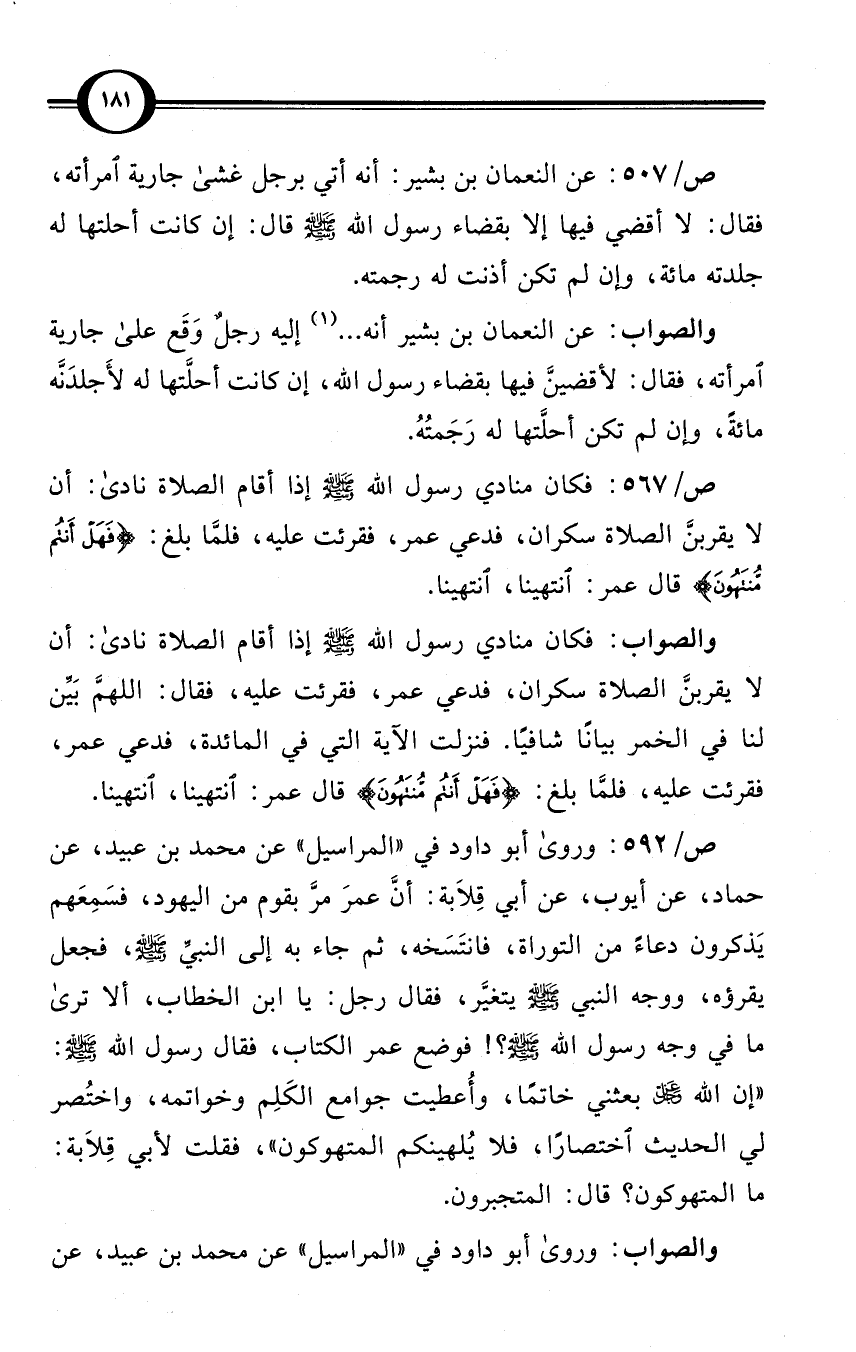 ١٨١
ص/ ٥٠٧: عن النعمان بن بشير: أنه أتي برجل غشىٰ جارية ٱمرأته،
فقال: لا أقضي فيها إلا بقضاء رسول الله ﷺ قال: إن كانت أحلتها له
جلدته مائة، وإن لم تكن أذنت له رجمته.
والصواب: عن النعمان بن بشير أنه...(١) إليه رجلٌ وَقَع علىٰ جارية
ٱمرأته، فقال: لأقضينَّ فيها بقضاء رسول الله، إن كانت أحلَّتها له لأَجلدَنَّه
مائةً، وإن لم تكن أحلَّتها له رَجَمتُهُ.
ص/ ٥٦٧: فكان منادي رسول الله ﷺ إذا أقام الصلاة نادىٰ: أن
لا يقربنَّ الصلاة سكران، فدعي عمر، فقرئت عليه، فلمَّا بلغ: ﴿فَهَلْ أَنتُم
مُّنتَهُونَ﴾ قال عمر: ٱنتهينا، ٱنتهينا.
والصواب: فكان منادي رسول الله ﷺ إذا أقام الصلاة نادىٰ: أن
لا يقربنَّ الصلاة سكران، فدعي عمر، فقرئت عليه، فقال: اللهمَّ بَيِّن
لنا في الخمر بيانًا شافيًا. فنزلت الآية التي في المائدة، فدعي عمر،
فقرئت عليه، فلمَّا بلغ: ﴿فَهَلْ أَنتُم مُّنتَهُونَ﴾ قال عمر: ٱنتهينا، ٱنتهينا.
ص/ ٥٩٢: وروىٰ أبو داود في «المراسيل» عن محمد بن عبيد، عن
حماد، عن أيوب، عن أبي قِلاَبة: أنَّ عمرَ مرَّ بقوم من اليهود، فسَمِعَهم
يَذكرون دعاءً من التوراة، فانتَسَخه، ثم جاء به إلى النبيِّ ﷺ، فجعل
يقرؤه، ووجه النبي ﷺ يتغيَّر، فقال رجل: يا ابن الخطاب، ألا ترىٰ
ما في وجه رسول الله ﷺ؟! فوضع عمر الكتاب، فقال رسول الله ﷺ:
«إن الله ﷻ بعثني خاتمًا، وأُعطيت جوامع الكَلِم وخواتمه، واختُصر
لي الحديث ٱختصارًا، فلا يُلهينكم المتهوكون»، فقلت لأبي قِلاَبة:
ما المتهوكون؟ قال: المتجبرون.
والصواب: وروىٰ أبو داود في «المراسيل» عن محمد بن عبيد، عن